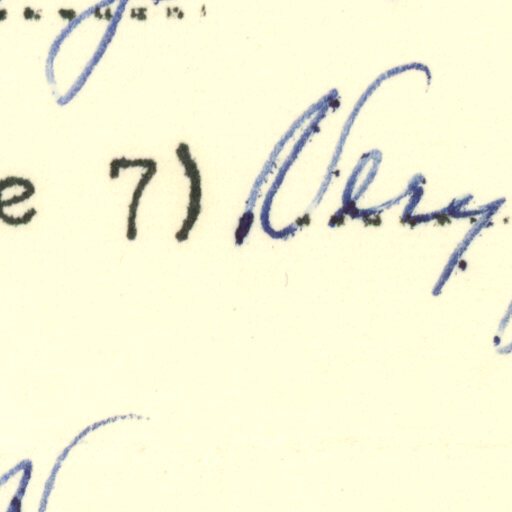 e 7) Very